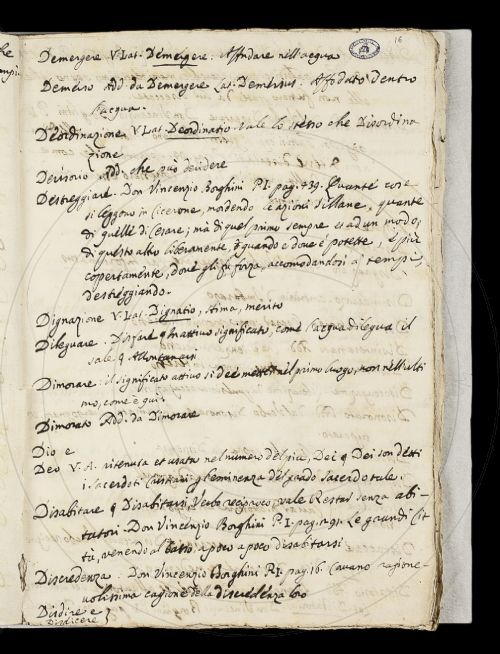 16
Demergere V. Lat. Demergere. Affondare nell'acqua
Demerso Add. da Demergere Lat. Demersus. Affodato dentro
l'acqua.
Deordinazione V. Lat. Deordinatio. vale lo stesso che Disordina
zione
Decisorio Add. che può decidere
Destreggiare. Don Vincenzio Borghini P.I. pag. 439. Quante cose
si leggono in Cicerone, mordendo le azioni Sillane, quante
di quelle di Cesare; ma di quel primo sempre e ad un modo;
di questo altro liberamente, quando e dove e' potette, e più
copertamente, dove gli fu forza, accomodandosi a' tempi,
destreggiando.
Dignazione V. Lat. Dignatio, stima, merito
Dileguare. Disfare in attivo significato, come l'acqua dilegua il
sale. Allontanarsi
Dimorare. il significato attivo si dee mettere nel primo luogo, non nell'ulti
mo, come è qui.
Dimorato Add. da Dimorare
Dio e
Deo V. A. ritenuta et usata nel numero del più, Dei q Dei son detti
i Sacerdoti Cristiani p l'eminenza del grado Sacerdotale.
Disabitare q Disabitarsi, Verbo reciproco, vale Restar senza abi-
tatori. Don Vincenzio Borghini P.I. pag. 291. Le grandi Cit
tà, venendo al basso, a poco a poco disabitarsi.
Discredenza. Don Vincenzio Borghini P.I. pag. 16. Cavano ragione-
volissima cagione della discredenza loro
Disdire e
Disdicere